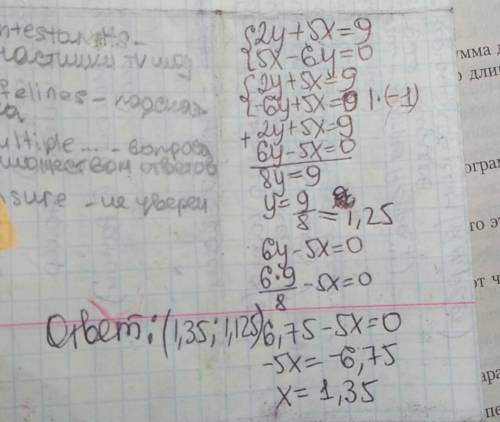 ntestants -
частники тv шоу
felines - подсказ
ка
ultiple ... - вопрос
множеством ответов
nsure - не уверен
{2y+5x=9
{5x-6y=0
{2y+5x=9
{-6y+5x=0 |·(-1)
+2y+5x=9
6y-5x=0
8y=9
y=9/8=1,25
6y-5x=0
6·9/8-5x=0
6,75-5x=0
-5x=-6,75
x=1,35
Ответ: (1,35; 1,125)
умма д
о дли
ограм
то э
от ч
ара
пе